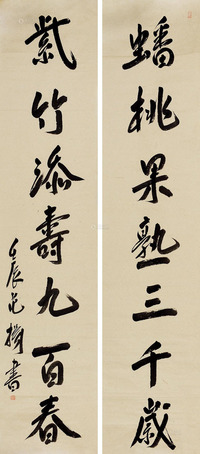 蟠桃果熟三千歲
紫竹添壽九百春
壬辰范揚書